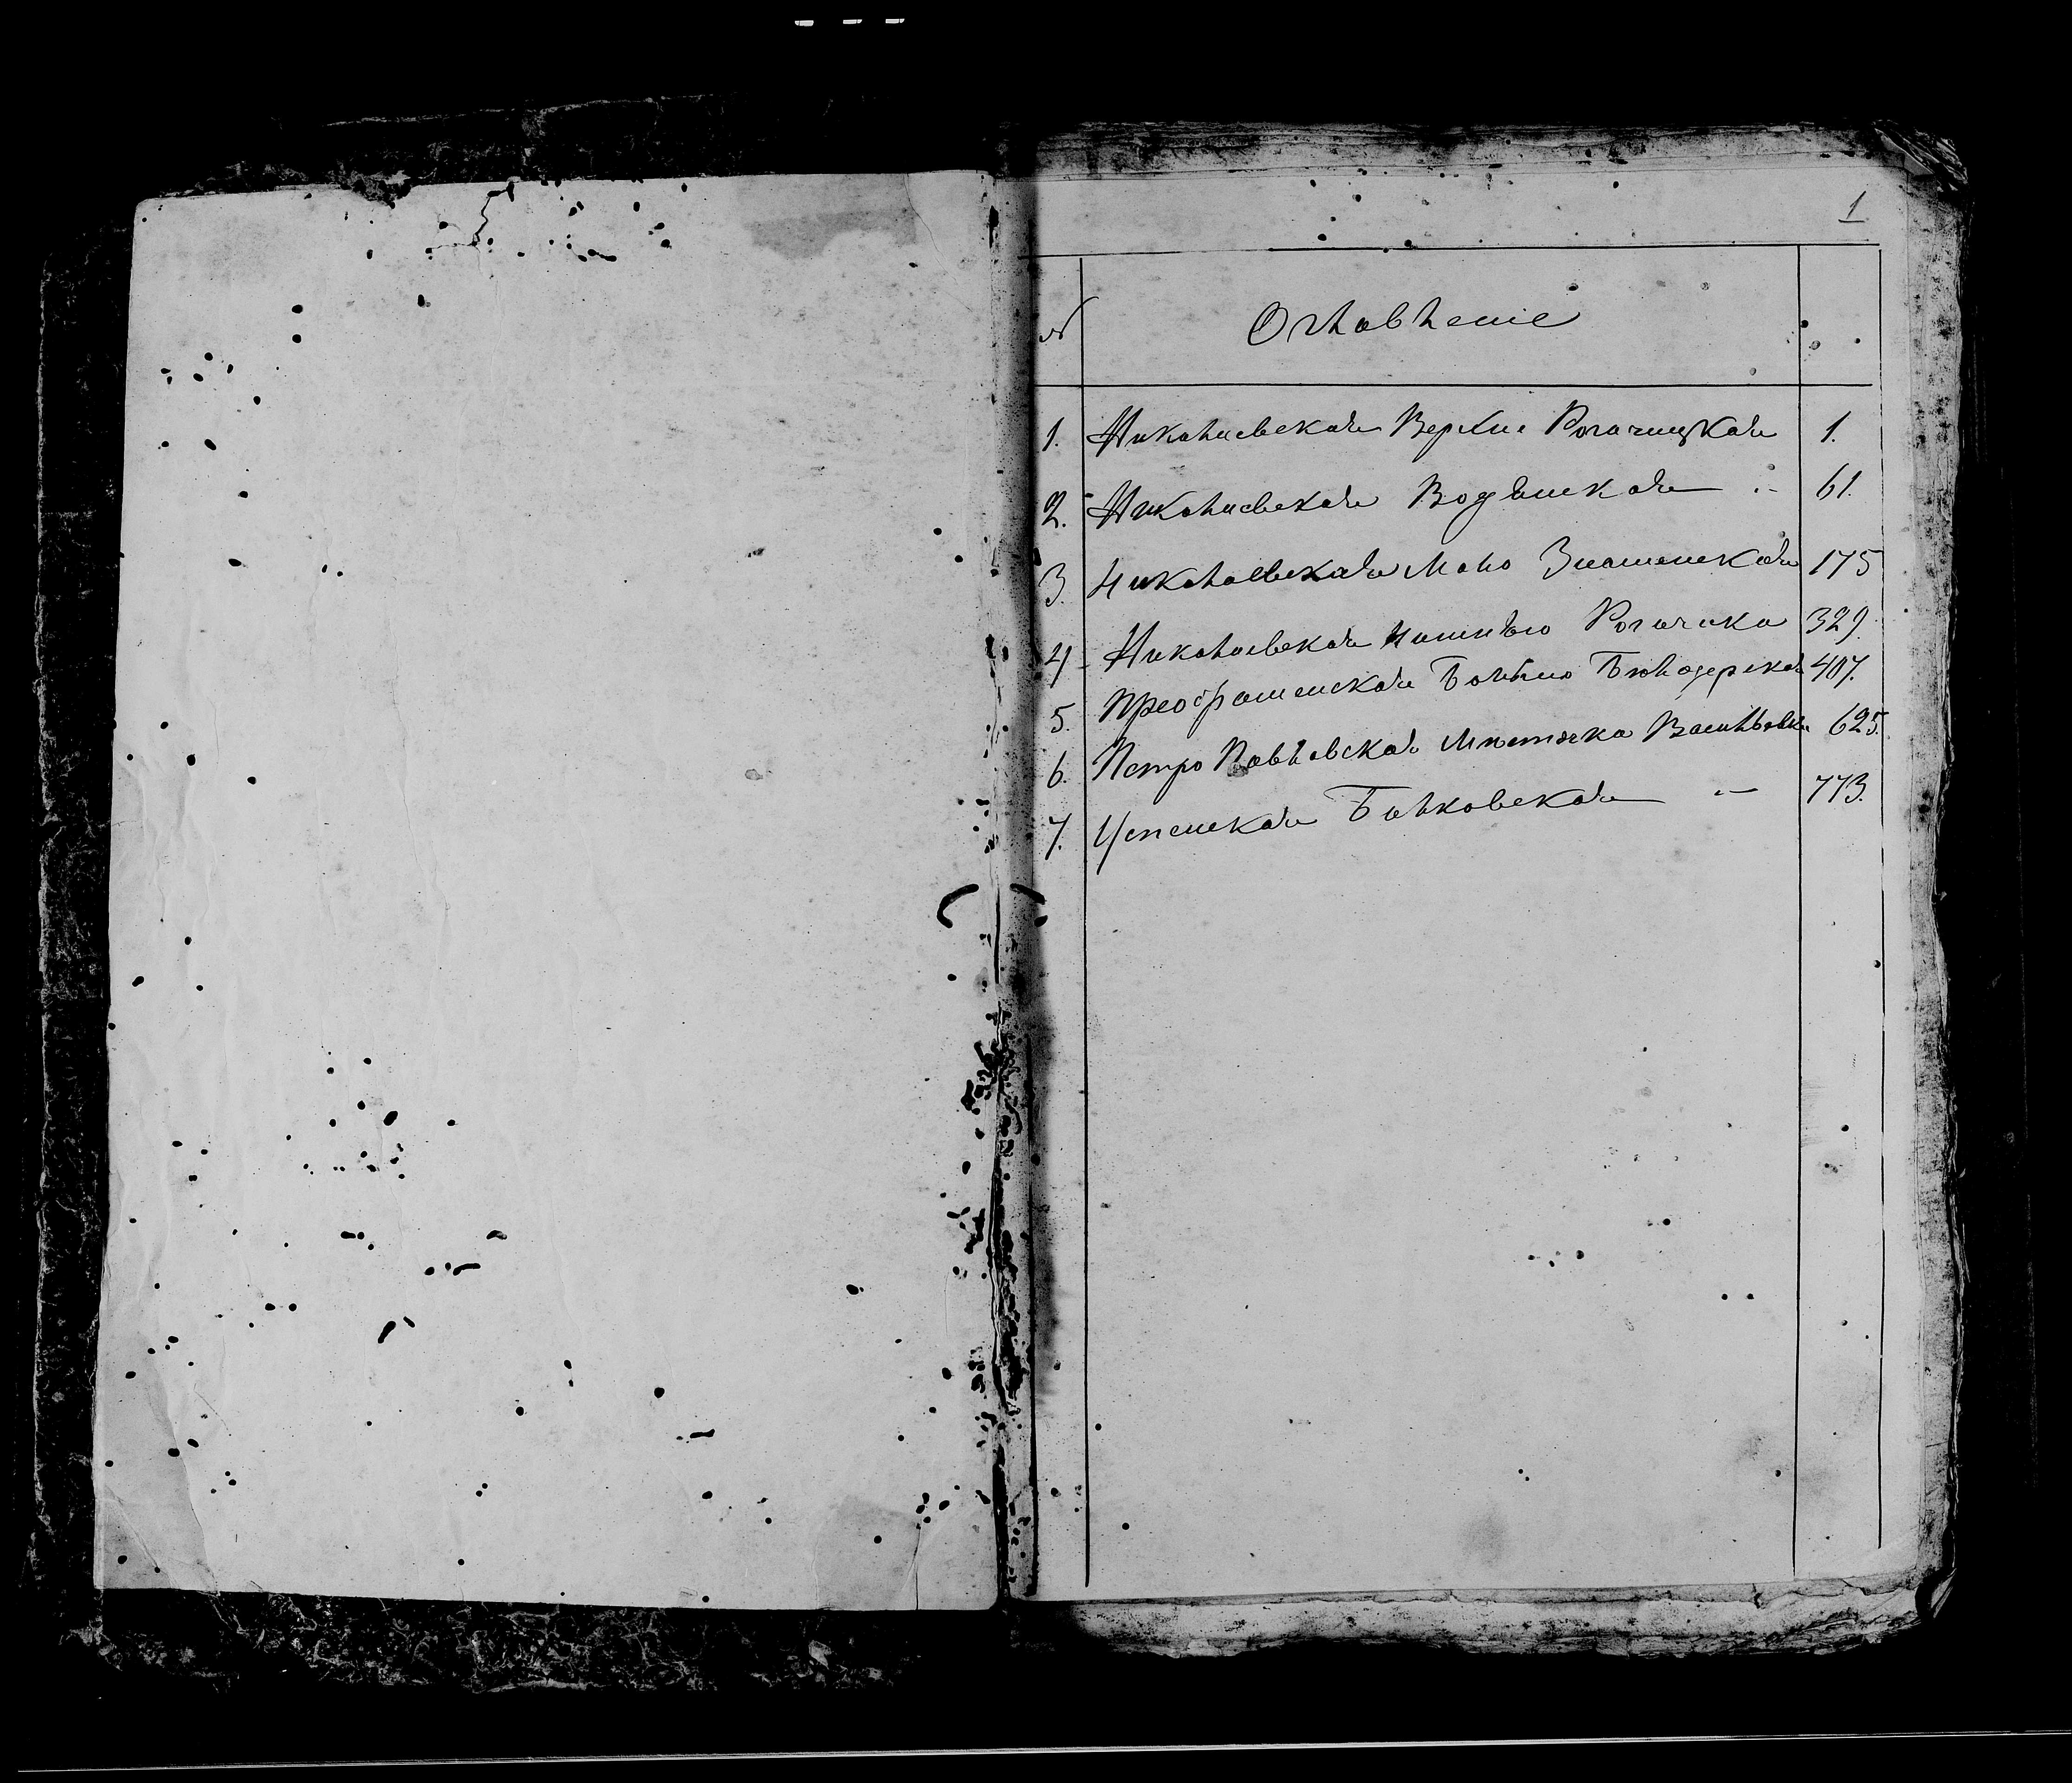 1
№ Оглавленіе
1. Николаевская Верхне Рогачицкая 1.
2. Николаевская Водянская 61.
3. Николаевская Мало Знаменская 175
4 Николаевская Рогачика 329.
5. Преображенская Больше Бѣлозерская 407.
6. Петро Павловская Мѣстечка Васильевки 625.
7. Успенская Балковская 773.